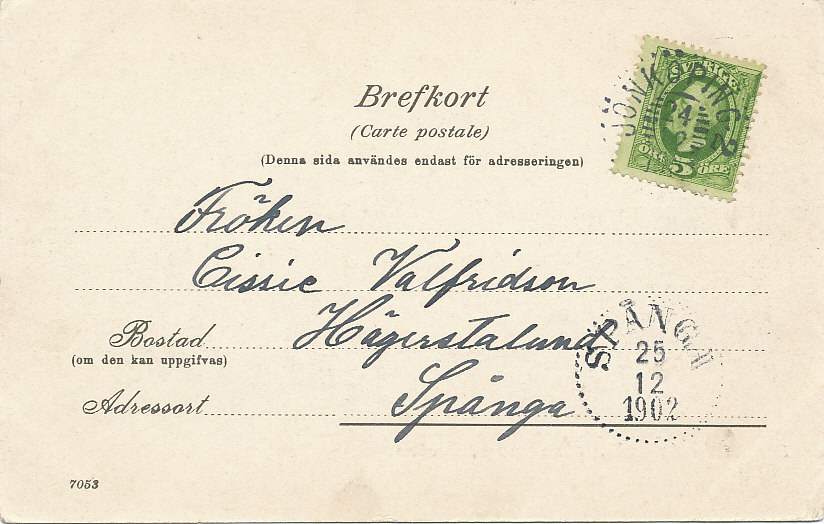 Brefkort
(Carte postale)
(Denna sida användes endast för adresseringen)
SVERIGE
5
ÖRE ÖRE
JÖNKÖPING 2
24
Fröken
Cissie Valfridson
Bostad Hägerstalund
(om den kan uppgifvas)
Adressort Spånga
SPÅNGA
25
12
1902
7053